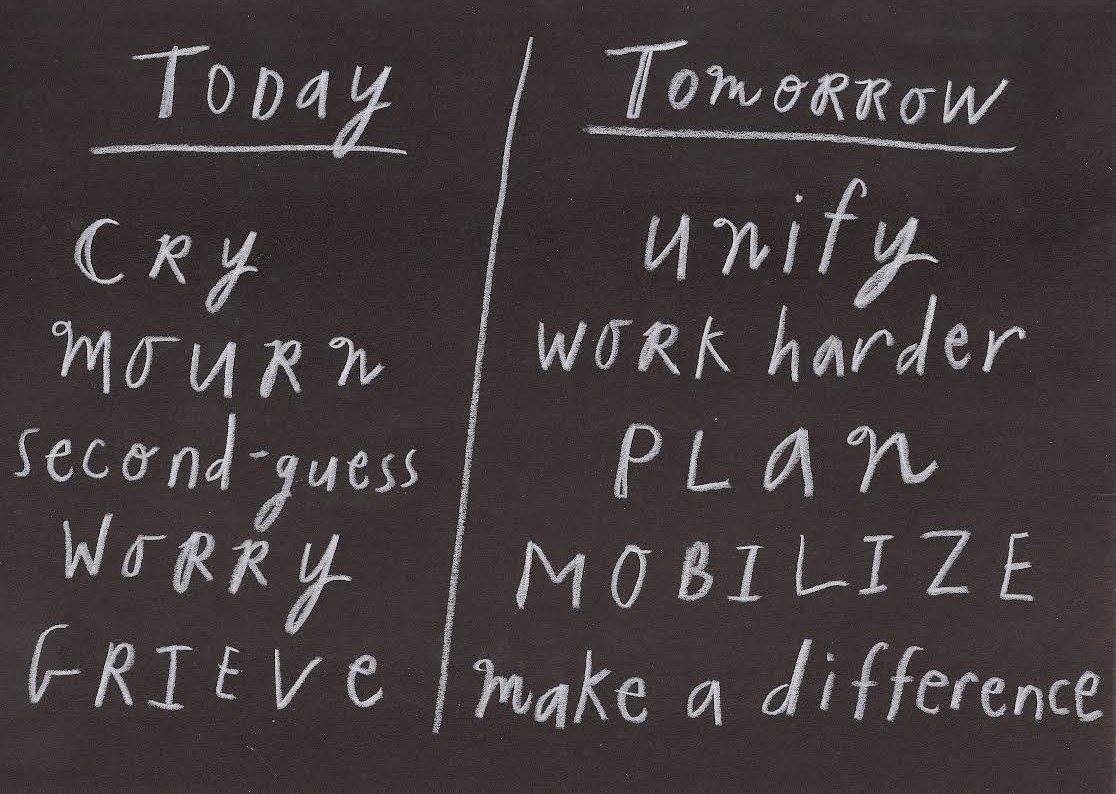 Today
Cry
mourn
second-guess
Worry
GRIEVe
Tomorrow
unify
WORK harder
PLan
MOBILIZE
make a difference